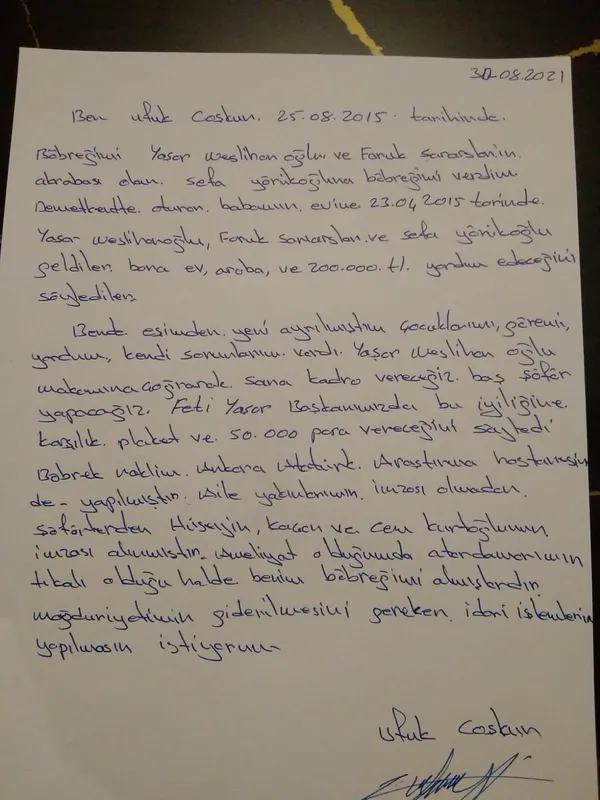 30.08.2021
Ben ufuk Coşkun. 25.08.2015. tarihinde.
Böbreğimi Yaşar Weslihan oğlu ve Faruk Sarıarslan'ın.
akrabası olan. sefa yörükoğluna böbreğimi verdim
Demetkentte. oturan. babamın. evine 23.04 2015 tarinde.
Yaşar weslihanoğlu, Faruk sarıarslan. ve sefa yörükoğlu
geldiler. bana ev, araba, ve 200.000. tl. yardım edeceğini
söylediler.
Bende. eşimden. yeni ayrılmıştım çocuklarımı, göremi,
yordum, kendi sorunlarım. vardı. Yaşar Weslihan oğlu
makamına çağırarak. sana kadro vereceğiz. baş şöför
yapacağız. Feti Yaşar Başkanımızda bu iyiliğine.
karşılık. plaket ve. 50.000 para vereceğini söyledi
Böbrek naklim. Ankara Atatürk. Araştırma hastanesin
de- yapılmıştır. Aile yakınlarımın. imzası olmadan.
şöförlerden Hüseyin, ve Cem kurtoğlunun.
imzası alınmıştır. Ameliyat olduğumda atardamarımın
tıkalı olduğu halde benim böbreğimi almışlardır.
mağduriyetimin giderilmesini gereken. idari işlemlerin
yapılmasın istiyorum-
ufuk Coşkun